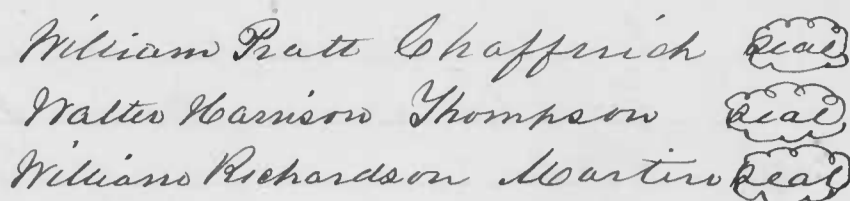 William Pratt Chaffinch Seal
Walter Harrison Thompson Seal
William Richardson Martin Seal